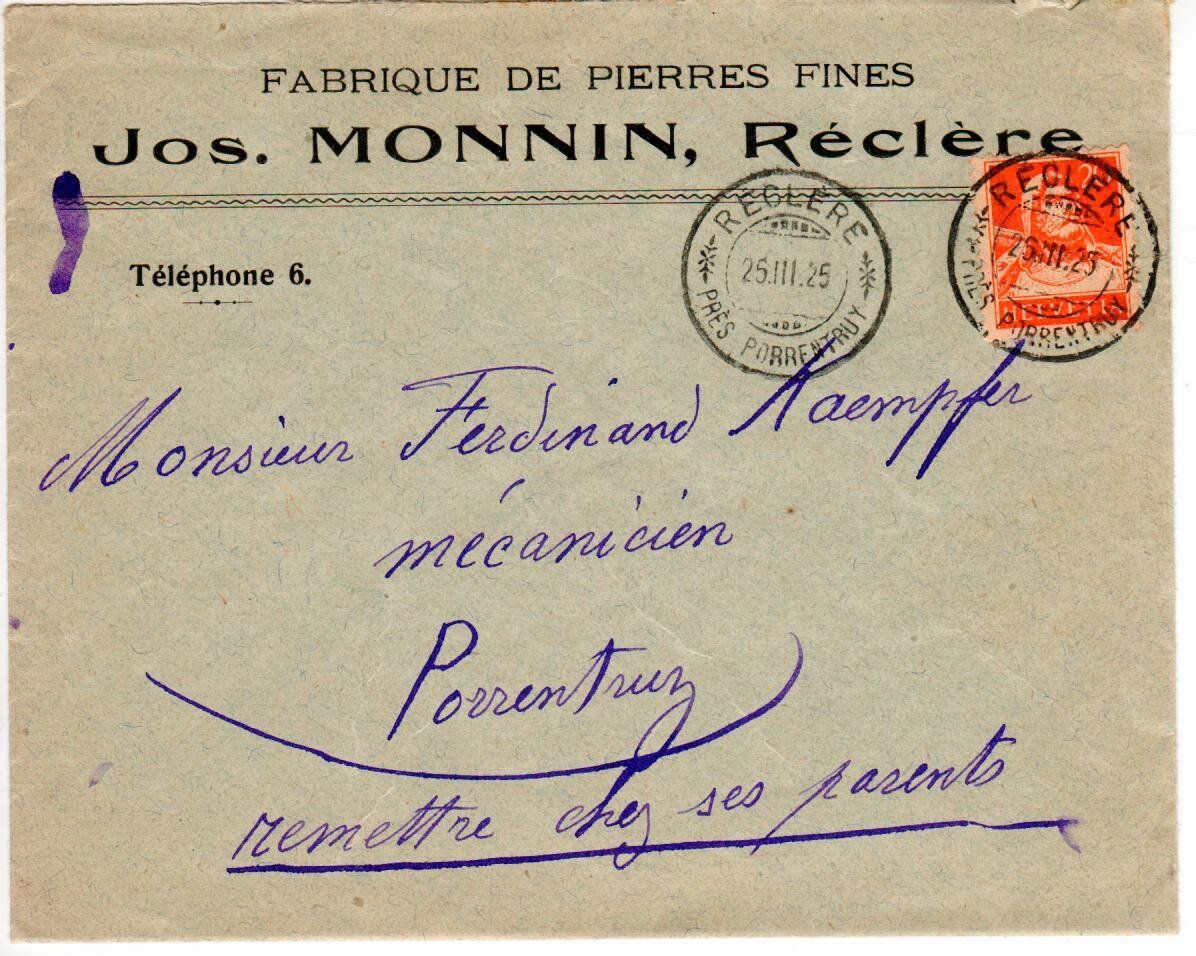 FABRIQUE DE PIERRES FINES
Jos. MONNIN, Réclère
Téléphone 6.
RÉCLÈRE
25.III.25
PRÈS PORRENTRUY
RÉCLÈRE
25.III.25
PRÈS PORRENTRUY
Monsieur Ferdinand Kaempfer
mécanicien
Porrentruy
remettre chez ses parents